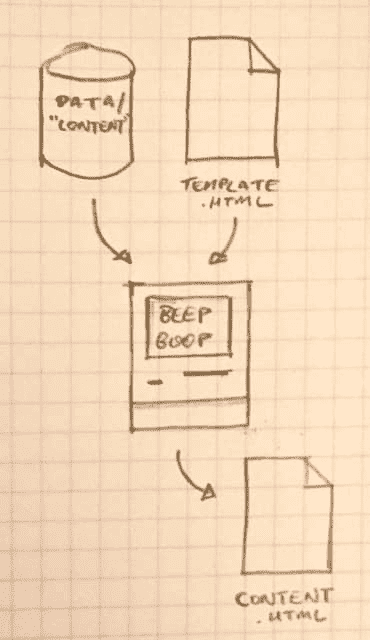 DATA/
"CONTENT"
TEMPLATE
.HTML
BEEP
BOOP
CONTENT
.HTML